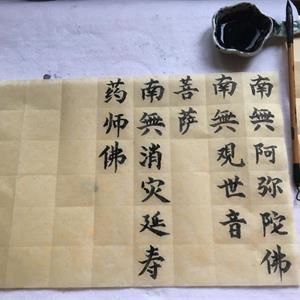 南無阿弥陀佛
南無观世音
菩萨
南無消灾延寿
药师佛